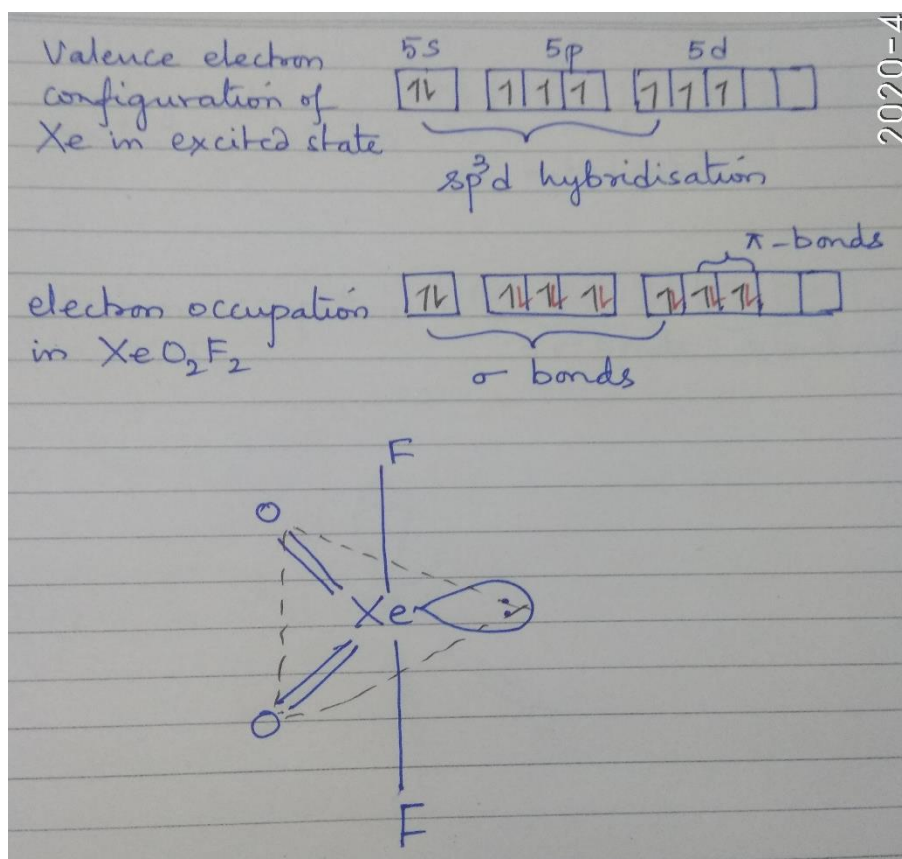 Valence electron
configuration of
Xe in excited state
5s 5p 5d
↿⇂ 1 1 1 1 1 1
sp³d hybridisation
π-bonds
electron occupation
in XeO₂F₂
↿⇂ ↿⇂ ↿⇂ ↿⇂ ↿⇂ ↿⇂ ↿⇂
σ bonds
F
O
Xe
O
F
2020-4